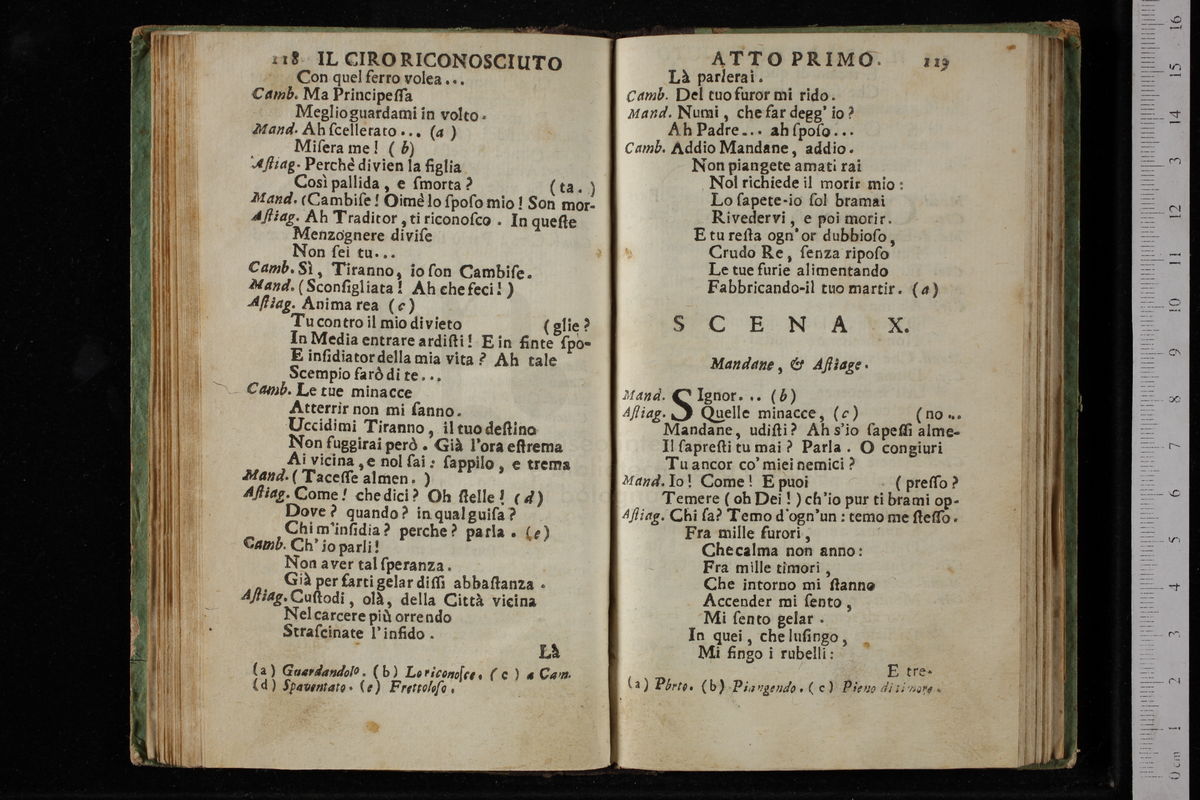 118 IL CIRO RICONOSCIUTO
Con quel ferro volea...
Camb. Ma Principeſſa
Meglio guardami in volto.
Mand. Ah ſcellerato... (a)
Miſera me! (b)
Aſtiag. Perchè divien la figlia
Così pallida, e ſmorta? (ta.)
Mand. (Cambiſe! Oimè lo ſpoſo mio! Son mor-
Aſtiag. Ah Traditor, ti riconoſco. In queſte
Menzognere diviſe
Non ſei tu...
Camb. Sì, Tiranno, io ſon Cambiſe.
Mand. (Sconſigliata! Ah che feci!)
Aſtiag. Anima rea (c)
Tu contro il mio divieto (glie?
In Media entrare ardiſti! E in finte ſpo-
E inſidiator della mia vita? Ah tale
Scempio farò di te...
Camb. Le tue minacce
Atterrir non mi ſanno.
Uccidimi Tiranno, il tuo deſtino
Non fuggirai però. Già l'ora eſtrema
Ai vicina, e nol ſai: ſappilo, e trema
Mand. (Taceſſe almen.)
Aſtiag. Come! che dici? Oh ſtelle! (d)
Dove? quando? in qual guiſa?
Chi m'inſidia? perche? parla. (e)
Camb. Ch'io parli!
Non aver tal ſperanza.
Già per farti gelar diſſi abbaſtanza.
Aſtiag. Cuſtodi, olà, della Città vicina
Nel carcere più orrendo
Straſcinate l'infido.
Là
(a) Guardandolo. (b) Lo riconoſce. (c) a Cam.
(d) Spaventato. (e) Frettoloſo.
ATTO PRIMO. 119
Là parlerai.
Camb. Del tuo furor mi rido.
Mand. Numi, che far degg'io?
Ah Padre... ah ſpoſo...
Camb. Addio Mandane, addio.
Non piangete amati rai
Nol richiede il morir mio:
Lo ſapete-io ſol bramai
Rivedervi, e poi morir.
E tu reſta ogn'or dubbioſo,
Crudo Re, ſenza ripoſo
Le tue furie alimentando
Fabbricando-il tuo martir. (a)
SCENA X.
Mandane, & Aſtiage.
Mand. SIgnor... (b)
Aſtiag. Quelle minacce, (c) (no...
Mandane, udiſti? Ah s'io ſapeſſi alme-
Il ſapreſti tu mai? Parla. O congiuri
Tu ancor co' miei nemici?
Mand. Io! Come! E puoi (preſſo?
Temere (oh Dei!) ch'io pur ti brami op-
Aſtiag. Chi ſa? Temo d'ogn'un: temo me ſteſſo.
Fra mille furori,
Che calma non anno:
Fra mille timori,
Che intorno mi ſtanno
Accender mi ſento,
Mi ſento gelar.
In quei, che luſingo,
Mi fingo i rubelli:
E tre-
(a) Parte. (b) Piangendo. (c) Pieno di timore.